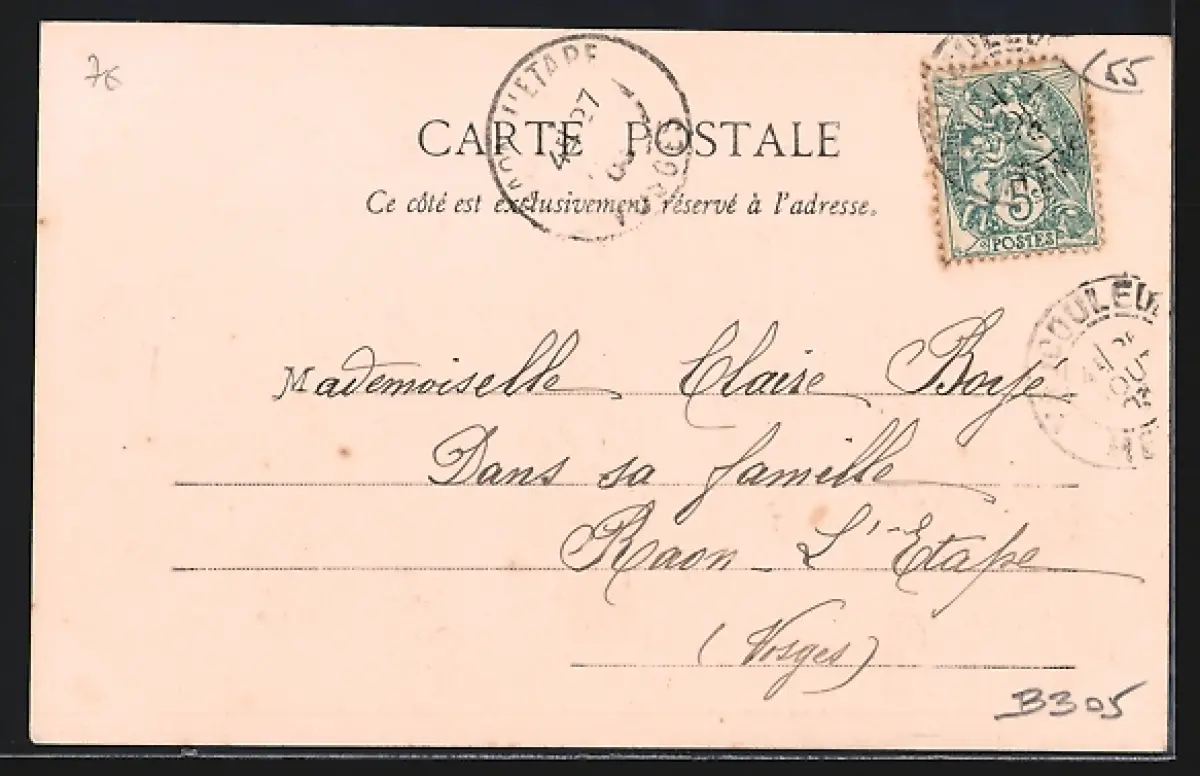 76
(55
CARTE POSTALE
Ce côté est exclusivement réservé à l'adresse.
L'ETAPE
5c
POSTES
COULEU
Mademoiselle Claire
Dans sa famille
Raon-L'Etape
(Vosges)
B305